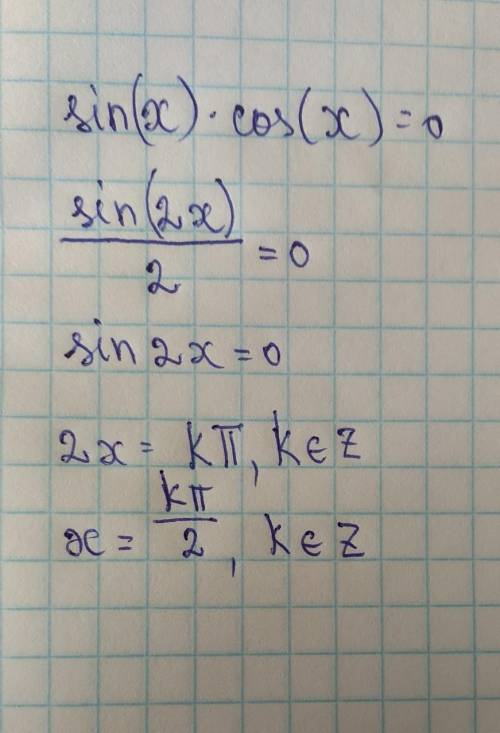 sin(x)·cos(x)=0
sin(2x)/2=0
sin2x=0
2x=kπ, k∈Z
x=kπ/2, k∈Z